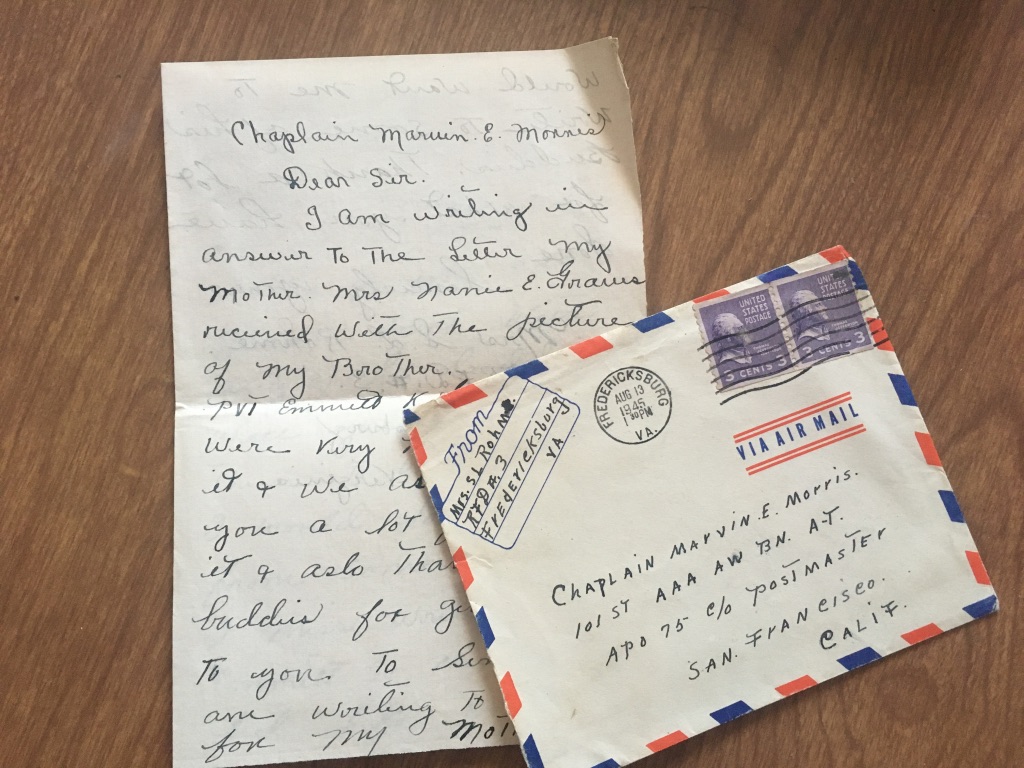 Chaplain Marvin. E. Morris
Dear Sir.
I am writing in
answer To The Letter My
Mother. Mrs Nanie E. Graves
recieved With The picture
of My Brother.
PVT Emmett
Were Very
it & We
you a lot
it & aslo
buddies for
To you. To
am writing To
for My
UNITED
STATES
POSTAGE
3 CENTS 3
UNITED
STATES
POSTAGE
3 CENTS 3
FREDERICKSBURG
AUG 13
1945
VA.
VIA AIR MAIL
From
Mrs. S. L. Rohm
RFD #. 3
FREDERICKSBURG
VA
CHAPLAIN MARVIN. E. MORRIS.
101ST AAA AW BN. A.T.
APO 75 C/O POSTMASTER
SAN. FRANCISCO.
CALIF.